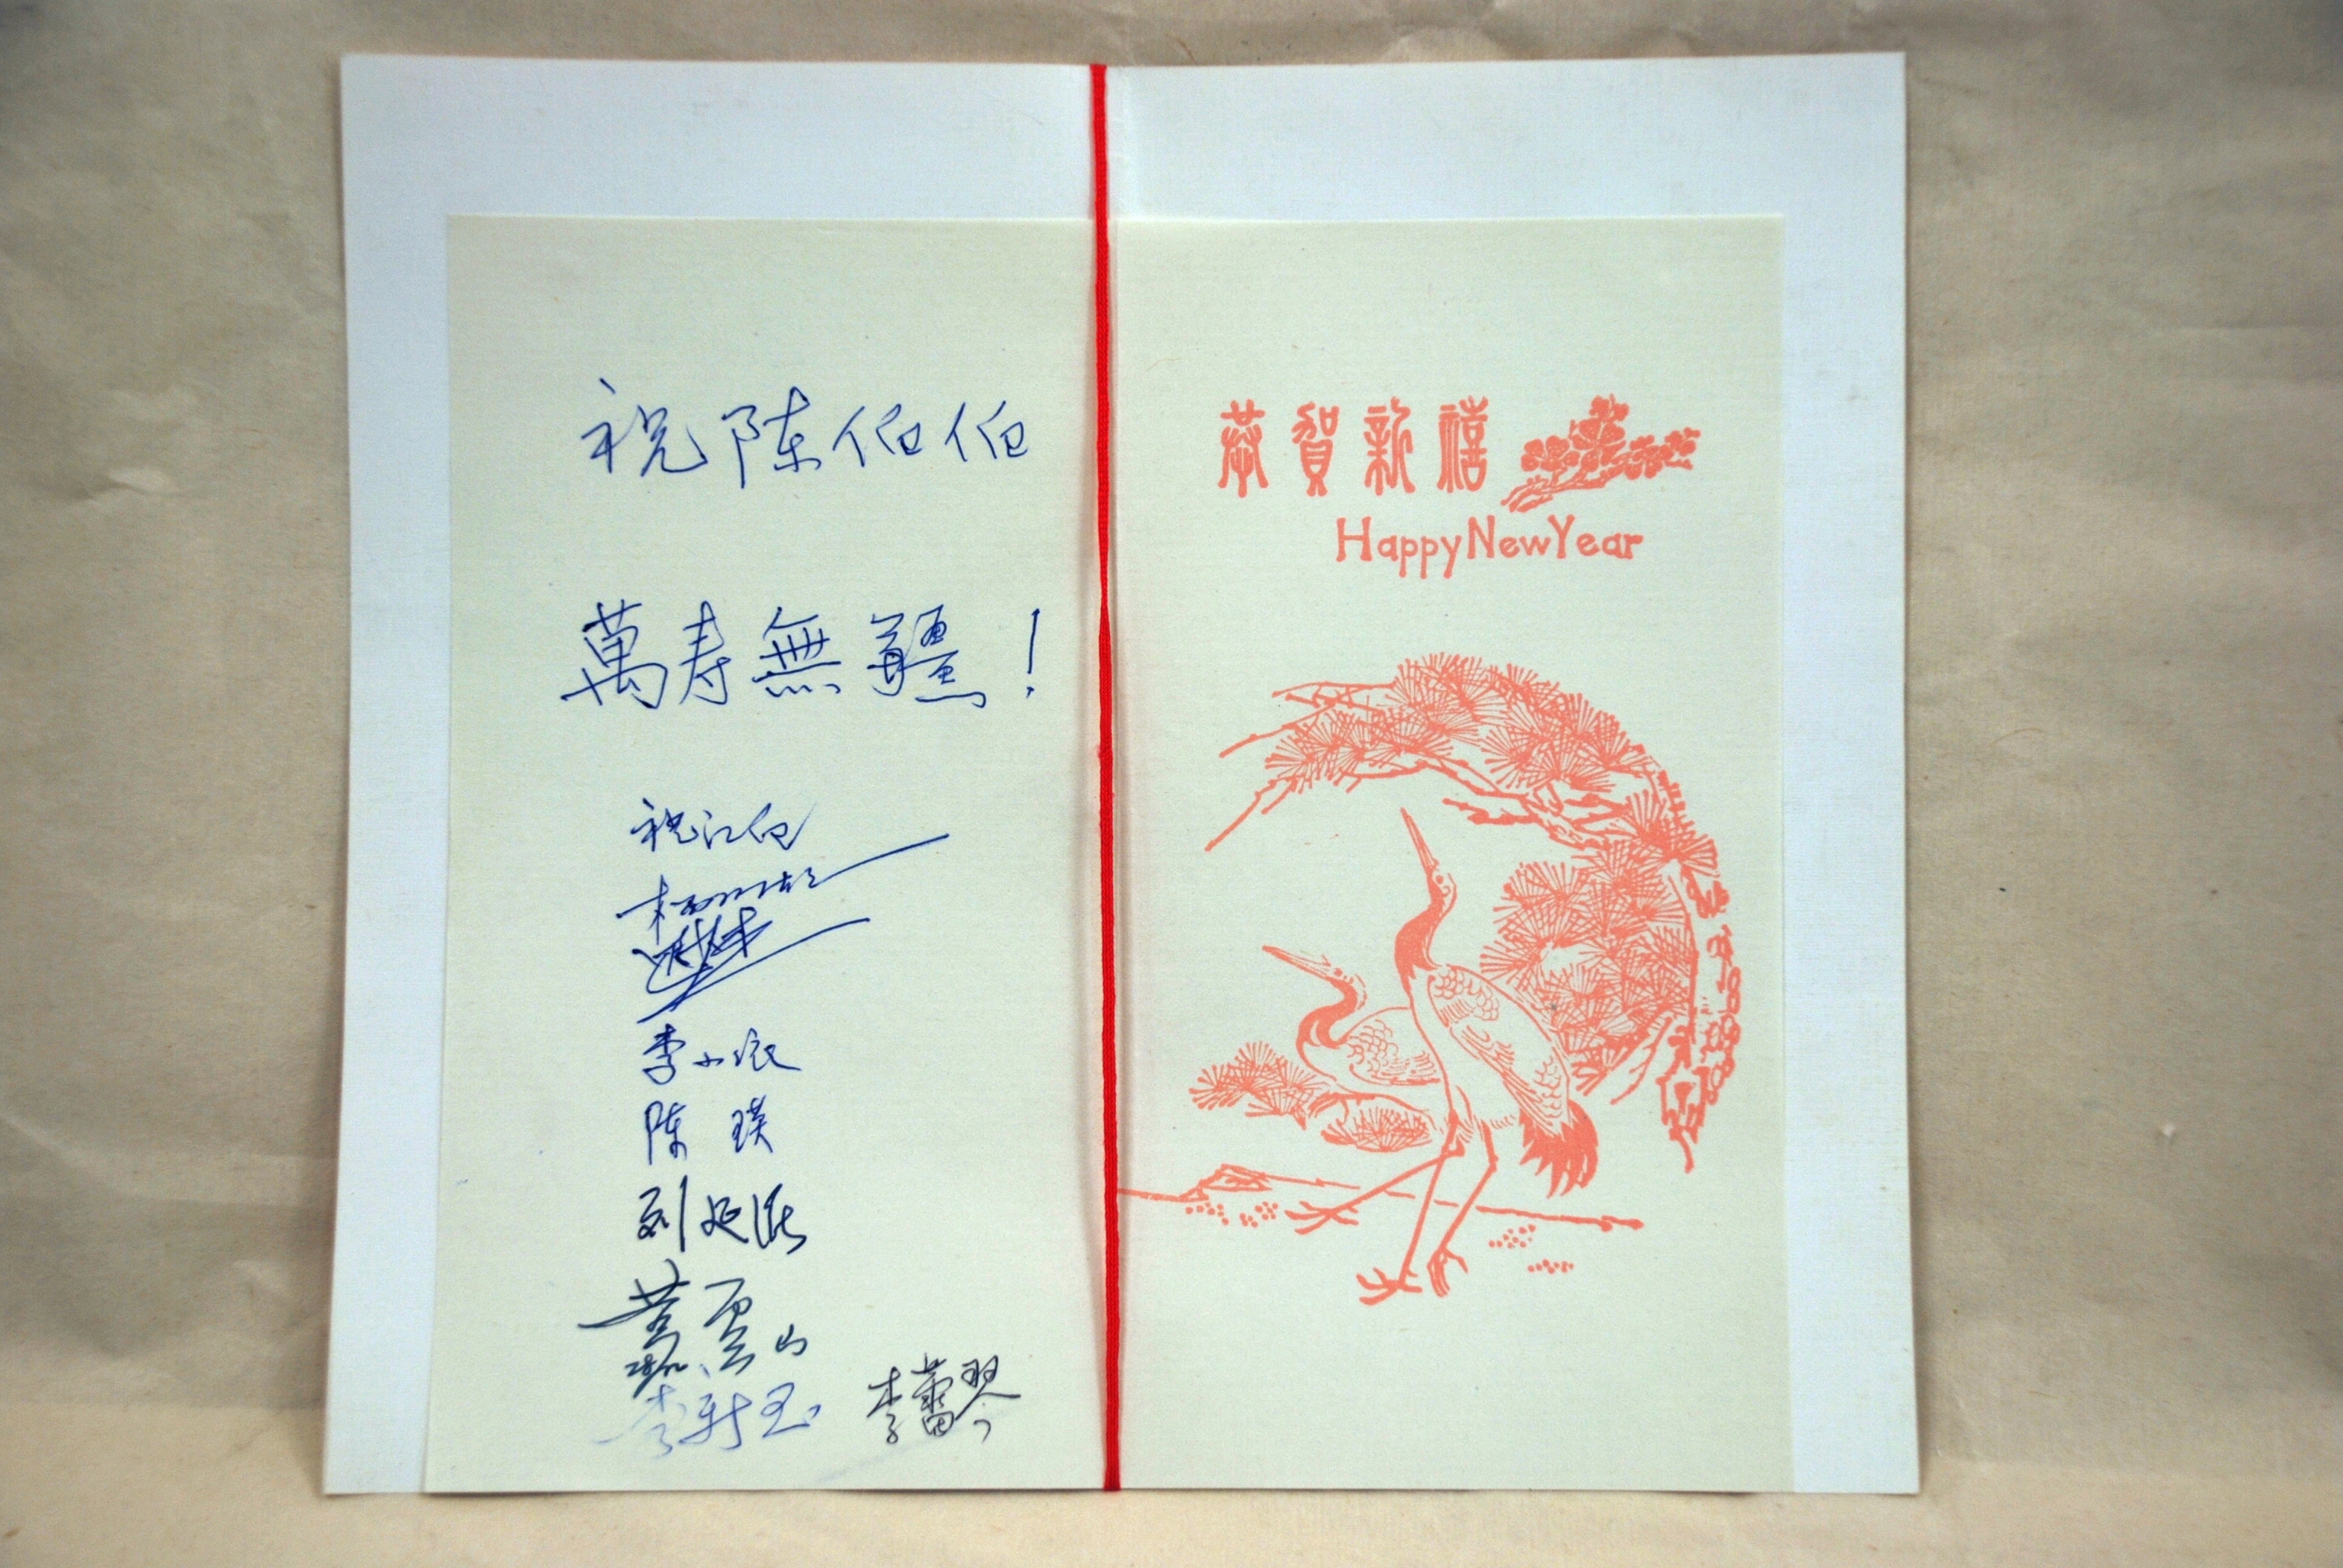 祝陈伯伯
萬寿無疆!
祝江伯
李小
陈瑛
刘延
雲山
李新玉 李蕾琴
恭賀新禧
Happy New Year